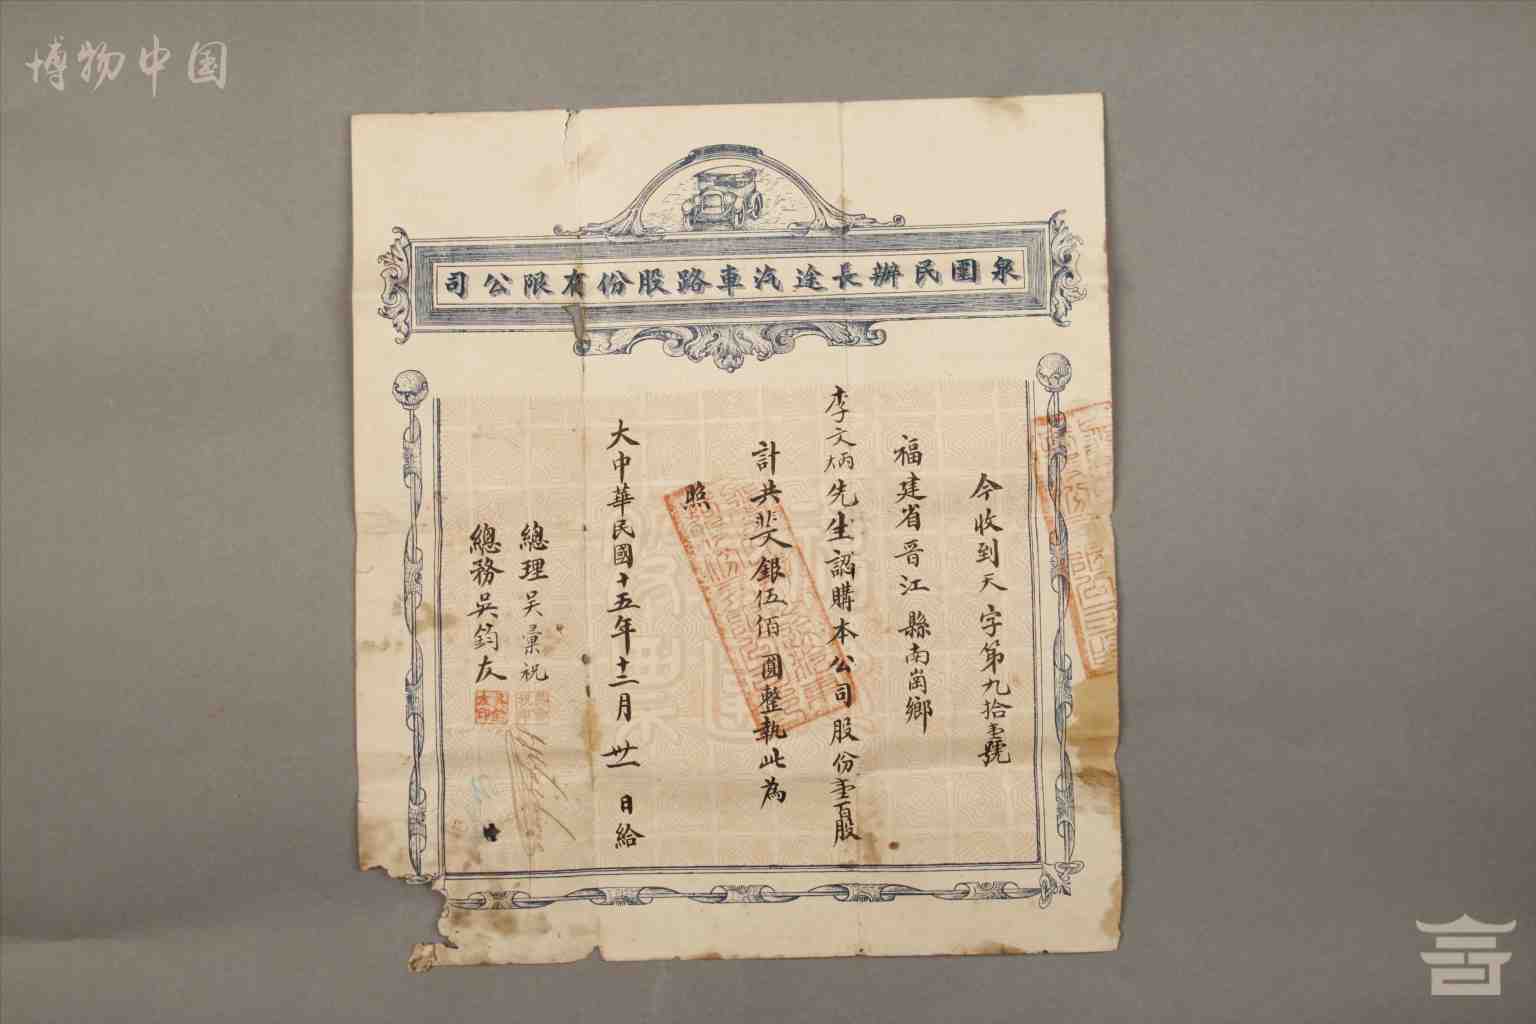 博物中国
泉圍民辦長途汽車路股份有限公司
今收到天字第九拾壹號
福建省晋江縣南崗鄉
李文炳先生認購本公司股份壹百股
計共斐銀伍佰圓整執此為
照
大中華民國十五年十二月卅一日給
總理吳彙祝
總務吳鈞友